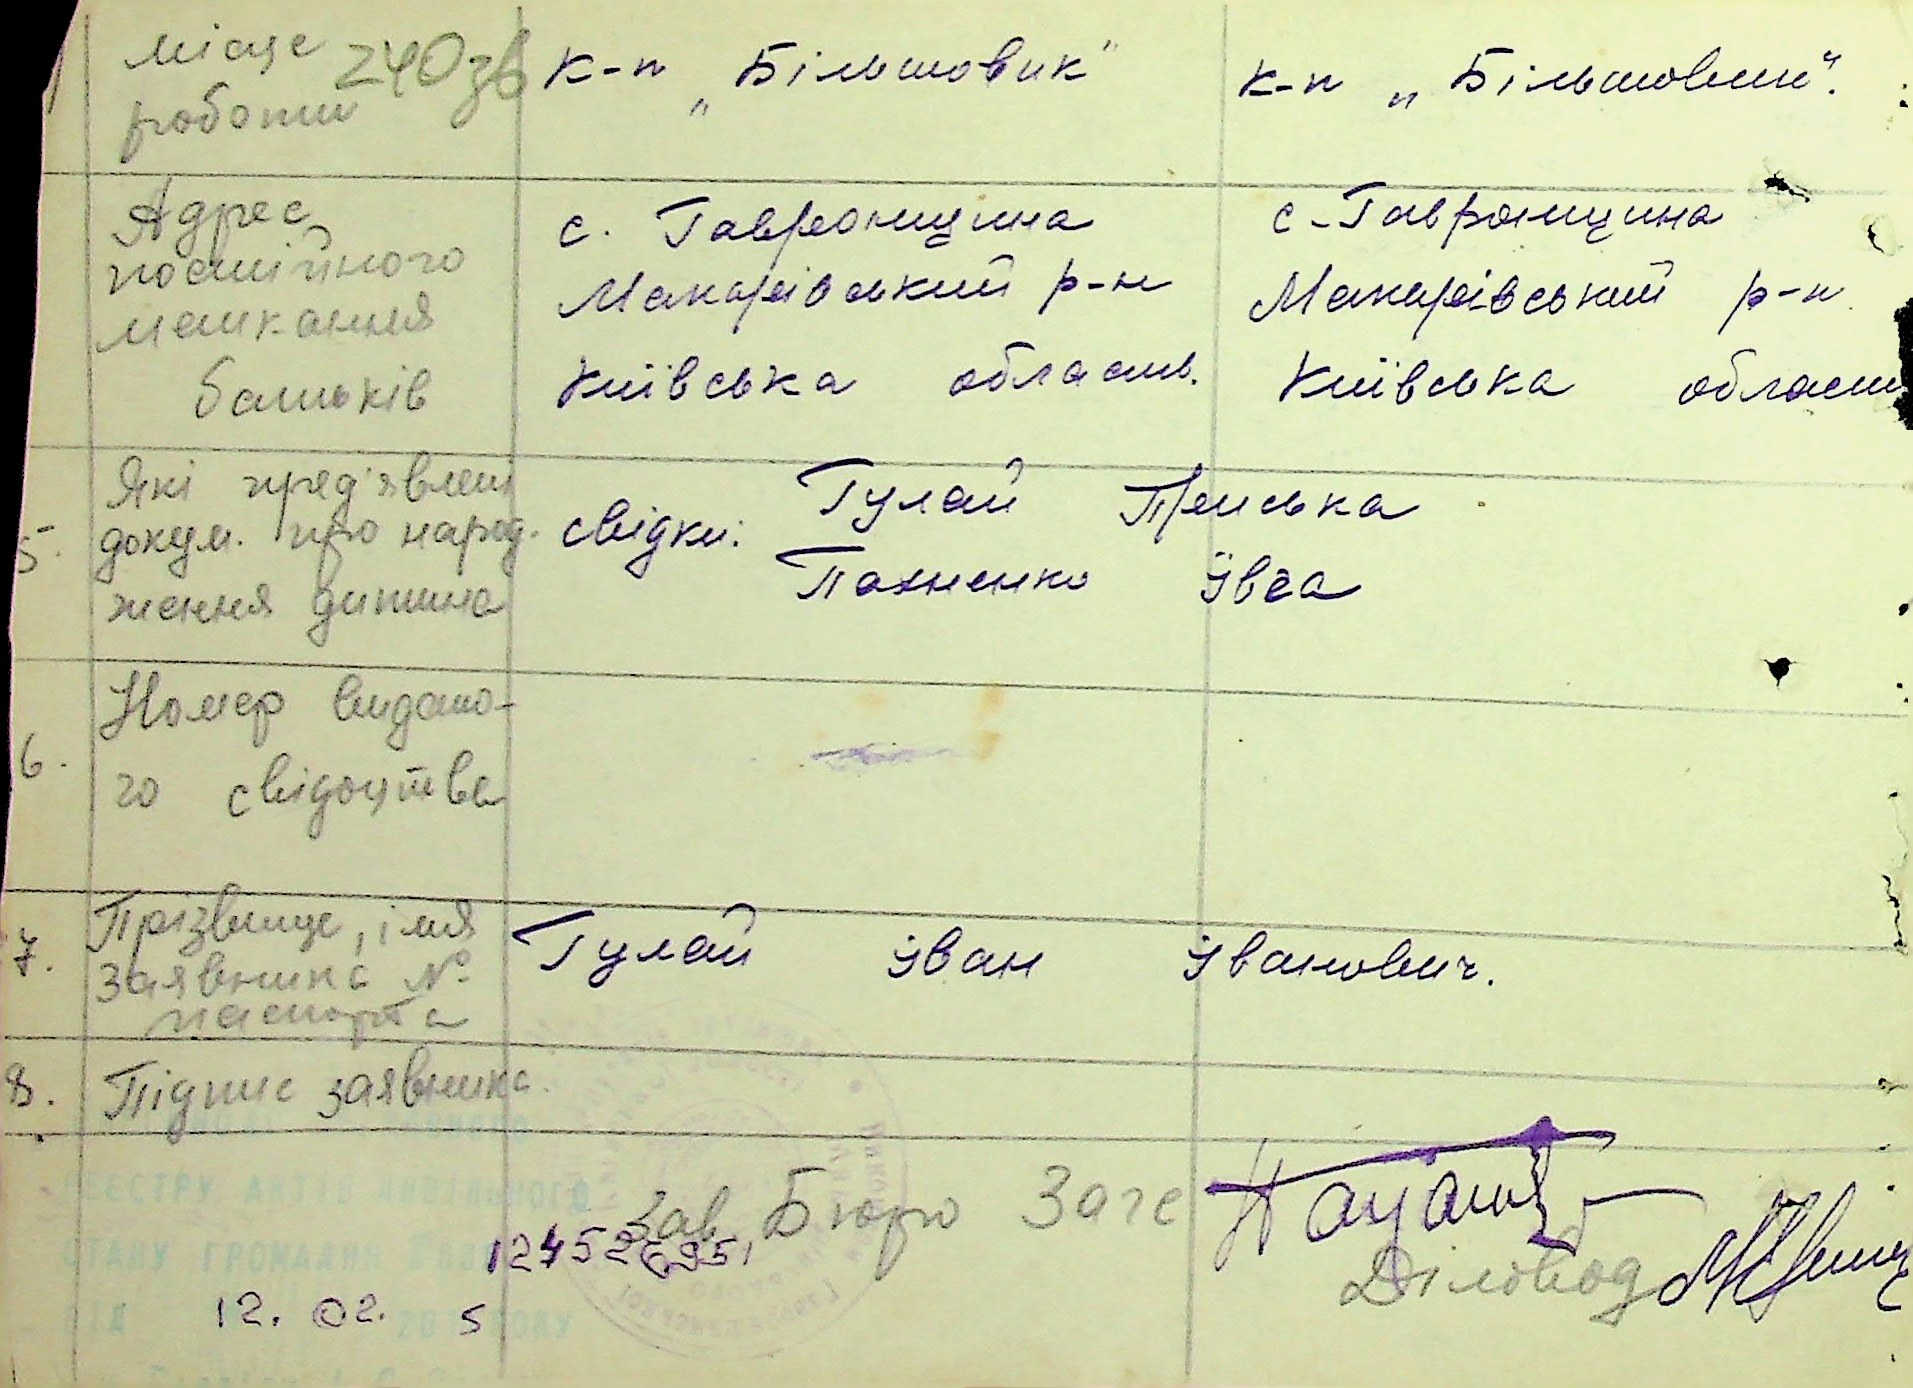 місце 240зв к-п „Більшовик" к-п „Більшовик".
роботи
Адрес с. Гавронщина с-Гавронщина
постійного Макарівський р-н Макарівський р-н
мешкання
батьків Київська область. Київська област
Які пред'явлені Гулай Приська
5. докум. про народ- свідки:
ження дитини Пахненко Ївга
Номер видано-
6. го свідоцтва
Прізвище, імя Гулай Іван Іванович.
7. заявника №
паспорта
8. Підпис заявника.
РЕЄСТРУ АКТІВ ЦИВІЛЬНОГО
Зав. Бюро Загс
СТАНУ ГРОМАДЯН
Діловод
ВІД 12. 02. 20 5 РОКУ